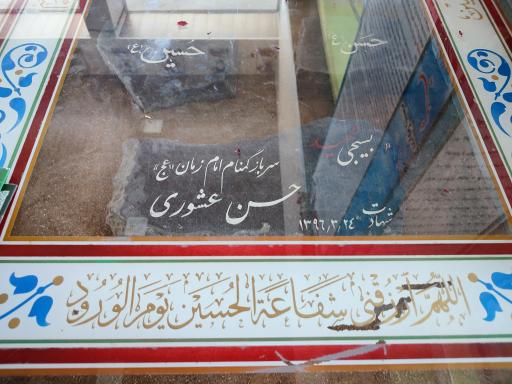 حسین (ع)
حسن (ع)
بسیجی شهید
سرباز گمنام امام زمان «عج»
حسن عشوری
شهادت ۱۳۹۶/۳/۲۴
اللهم ارزقنی شفاعة الحسین یوم الورود